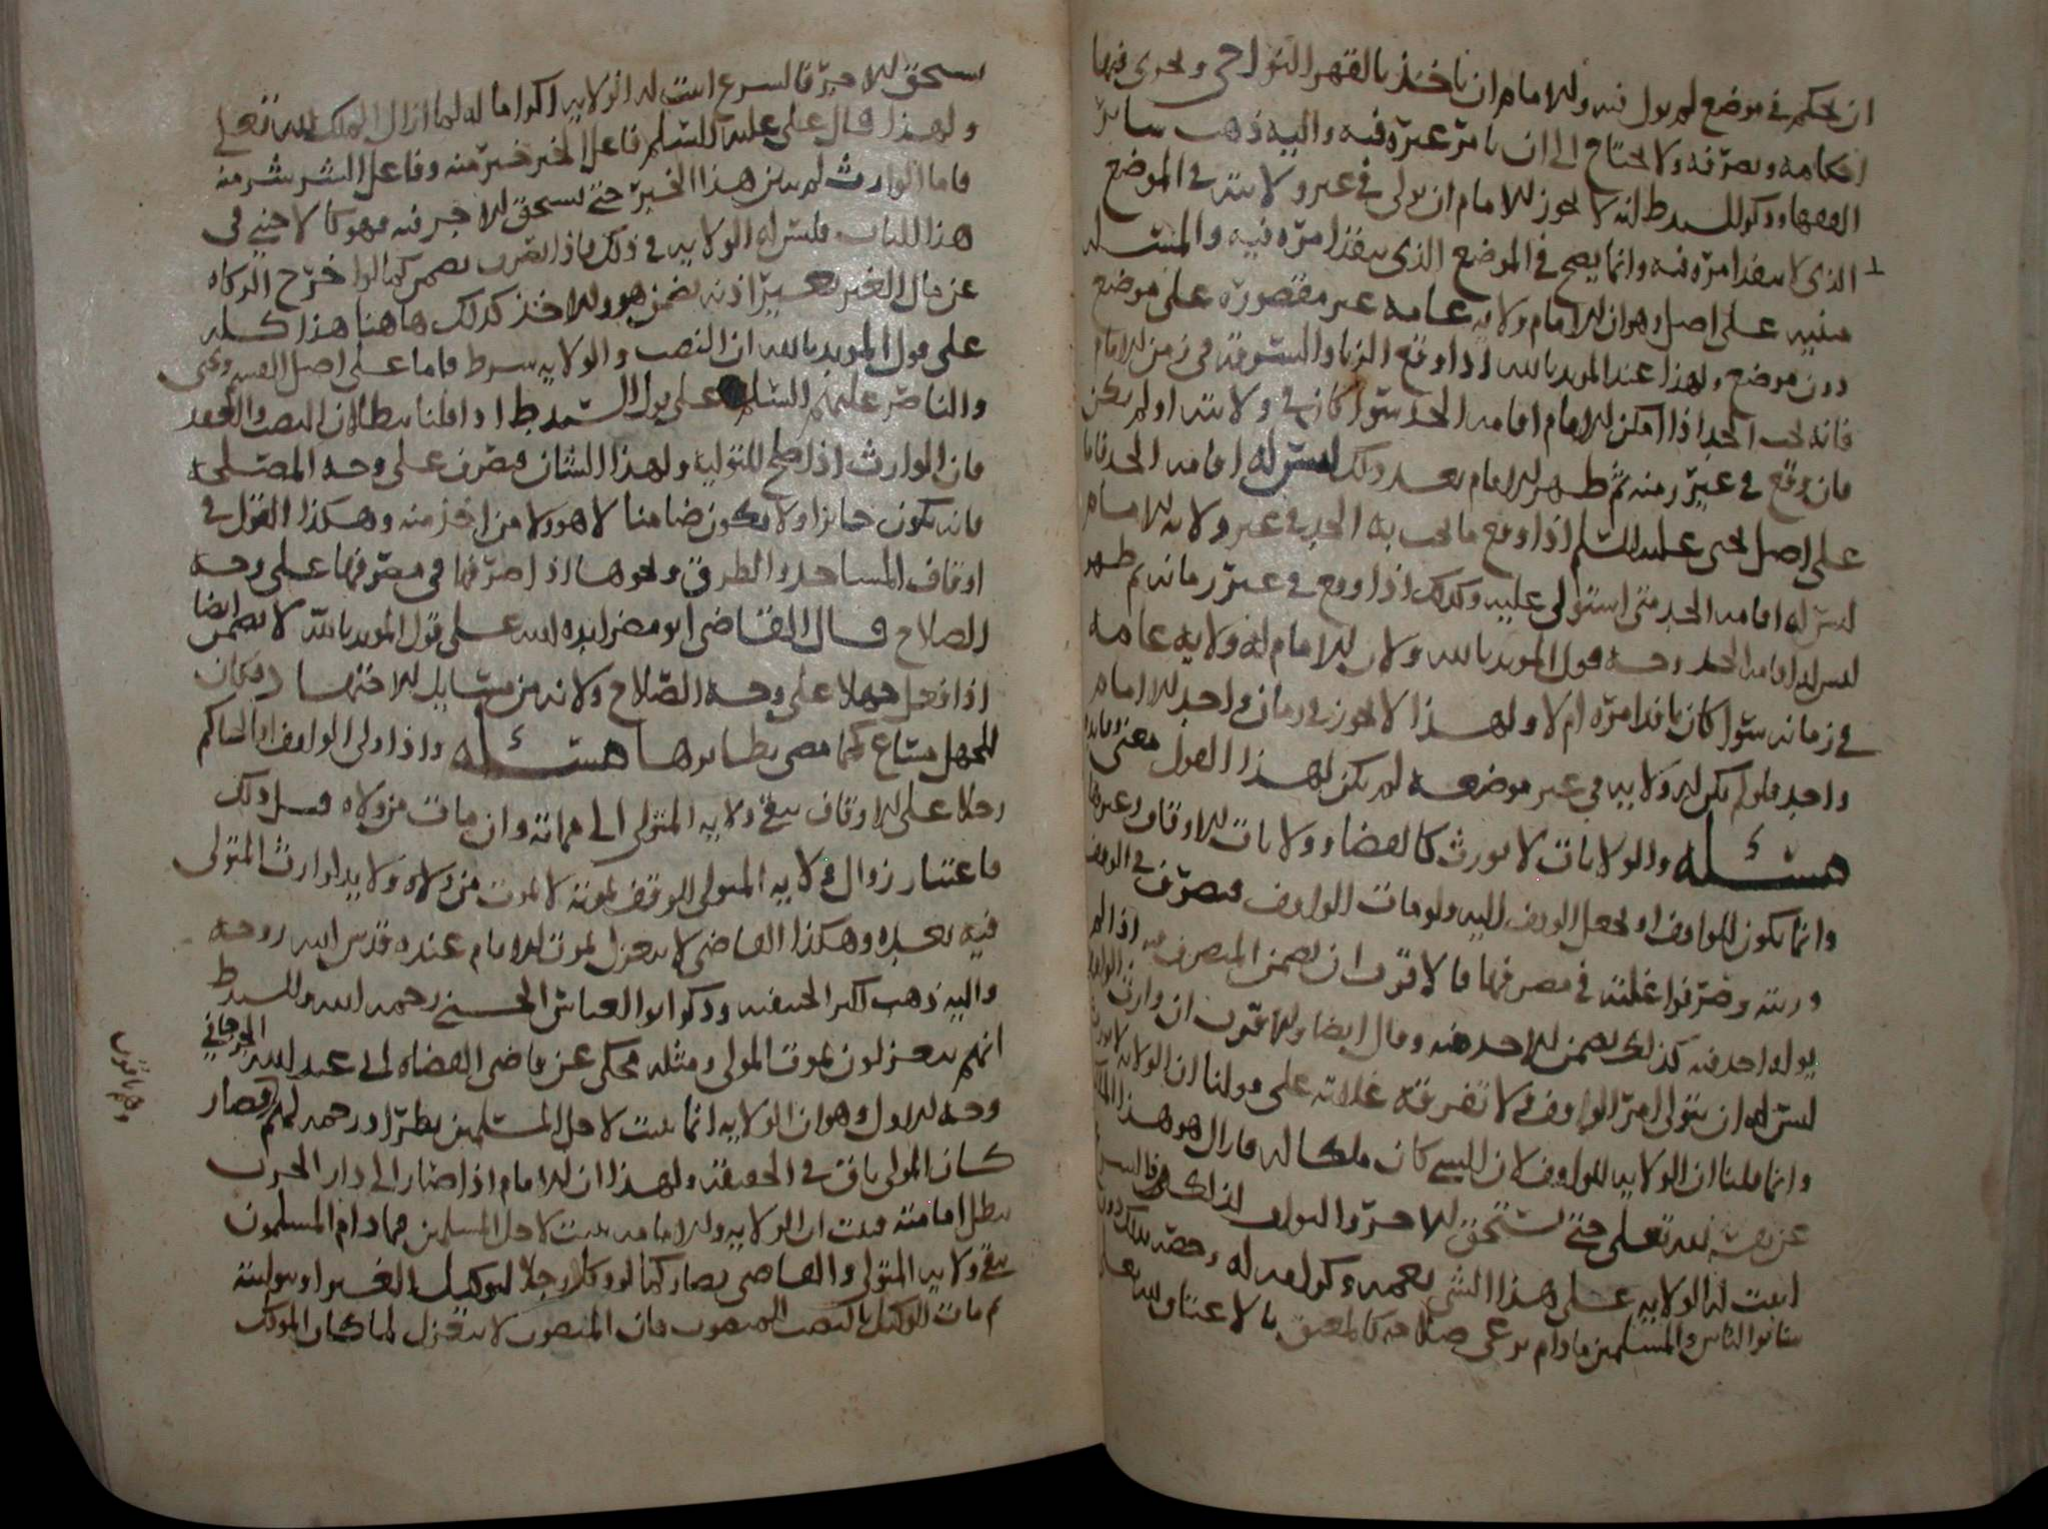 ان يحكم في موضع لم يول فيه وللامام ان ياخذ بالقهر النواحي ويجري فيها
احكامه وتصرفه ولا يحتاج الى ان يامر غيره فيه واليه ذهب سائر
الفقها وذكر انه لا يجوز للامام ان يولى في غير ولايته في الموضع
الذي لا ينفذ امره فيه وانما يصح في الموضع الذي ينفذ امره فيه والمسئلة
مبنية على اصل وهو ان للامام ولاية عامة غير مقصورة على موضع
دون موضع ولهذا عند المويد بالله اذا وقع الزنا والسرقة في زمن الامام
فانه يجب الحد اذا امكن للامام اقامة الحد سوا كان في ولايته او لم يكن
فان وقع في غير زمنه ثم ظهر الامام بعد ذلك ليس له اقامة الحد فاما
على اصل يحيى عليه السلم اذا وقع ما يجب به الحد في غير ولاية الامام
ليس له اقامة الحد متى استولى عليه وكذلك اذا وقع في غير زمانه ثم ظهر
ليس له اقامة الحد وجه قول المويد بالله ولان الامام له ولاية عامة
في زمانه سوا كان نافذا امره ام لا ولهذا لا يجوز في زمان واحد الا امام
واحد فلو لم يكن له ولاية في غير موضعه لم يكن لهذا القول معنى وفائدة
مسئلة والولايات لا تورث كالقضا وولايات الاوقاف وغيرها
وانما يكون للواقف او يجعل الوقف اليه ولو مات الواقف فتصرف في الوقف
ورثته وصرفوا غلته في مصرفها فالاقرب ان يضمن المتصرف فيه اذا لم
يول احد فيه كذلك يضمن الاخذ منه وقال ايضا والاقرب ان وارث الواقف
ليس له ان يتولى امر الوقف ولا تفرقة غلاته على قولنا ان الولاية لا تورث
وانما قلنا ان الولاية للواقف لان الشي كان ملكا له فازال هو هذا الملك
عن نفسه لله تعلى حتى تستحق الاجر والثواب لذلك
اثبت له الولاية على هذا الشي
سائر الناس والمسلمين ما دام يرعى صلاحه كالمعتق بالاعتاق
يستحق الاجر فالشرع اثبت له الولاية اكراما له لما ازال الملك لله تعلى
ولهذا قال على عليه السلم فاعل الخير خير منه وفاعل الشر شر منه
فاما الوارث لم يسن هذا الخير حتى يستحق الاجر فيه فهو كالاجنبي في
هذا الباب فليس له الولاية في ذلك فاذا تصرف يضمن كما لو اخرج الزكاه
عن مال الغير بغير اذنه يضمن هو والاخذ كذلك هاهنا هذا كله
على قول المويد بالله ان النصب والولاية شرط فاما على اصل القسم ويحيى
والناصر عليهم السلم على قول اذا قلنا ببطلان النصب والعقد
فان الوارث اذا صلح للتولية ولهذا الشان فتصرف على وجه المصلحة
فانه يكون جائزا ولا يكون ضامنا لا هو ولا من اخذ منه وهكذا القول في
اوقاف المساجد والطرق ونحوها اذا صرفها في مصرفها على وجه
الصلاح قال القاضي ابو مضر ايده الله على قول المويد بالله لا يضمن ايضا
اذا فعل جهلا على وجه الصلاح ولانه من مسايل الاجتهاد فكان
للجهل مساغ كما مضى نظائرها مسئلة واذا ولى الواقف او الحاكم
رجلا على الاوقاف يبقى ولاية المتولى الى مماته وان مات من ولاه قبل ذلك
فاعتبار زوال ولاية المتولى للوقف بموته لا بموت من ولاه ولا يد لوارث المتولى
فيه بعده وهكذا القاضي لا ينعزل بموت الامام عنده قدس الله روحه
واليه ذهب اكثر الحنفية وذكر ابو العباس الحسني رحمه الله
انهم ينعزلون بموت المولى ومثله محكى عن قاضي القضاه الى عبد الله الجرجاني
وجه الاول وهو ان الولاية انما يثبت لاجل المسلمين نظرا ورحمة لهم فصار
كان المولى باق في الحقيقة ولهذا ان الامام اذا صار الى دار الحرب
يبطل امامته فثبت ان الولاية والامامه يثبت لاجل المسلمين فما دام المسلمون
يبقى ولاية المتولى والقاضي فصار كما لو وكل رجلا لتوكيل الغير او توليته
ثم مات الوكيل بالنصب المنصوب فان المنصوب لا ينعزل لما كان الموكل